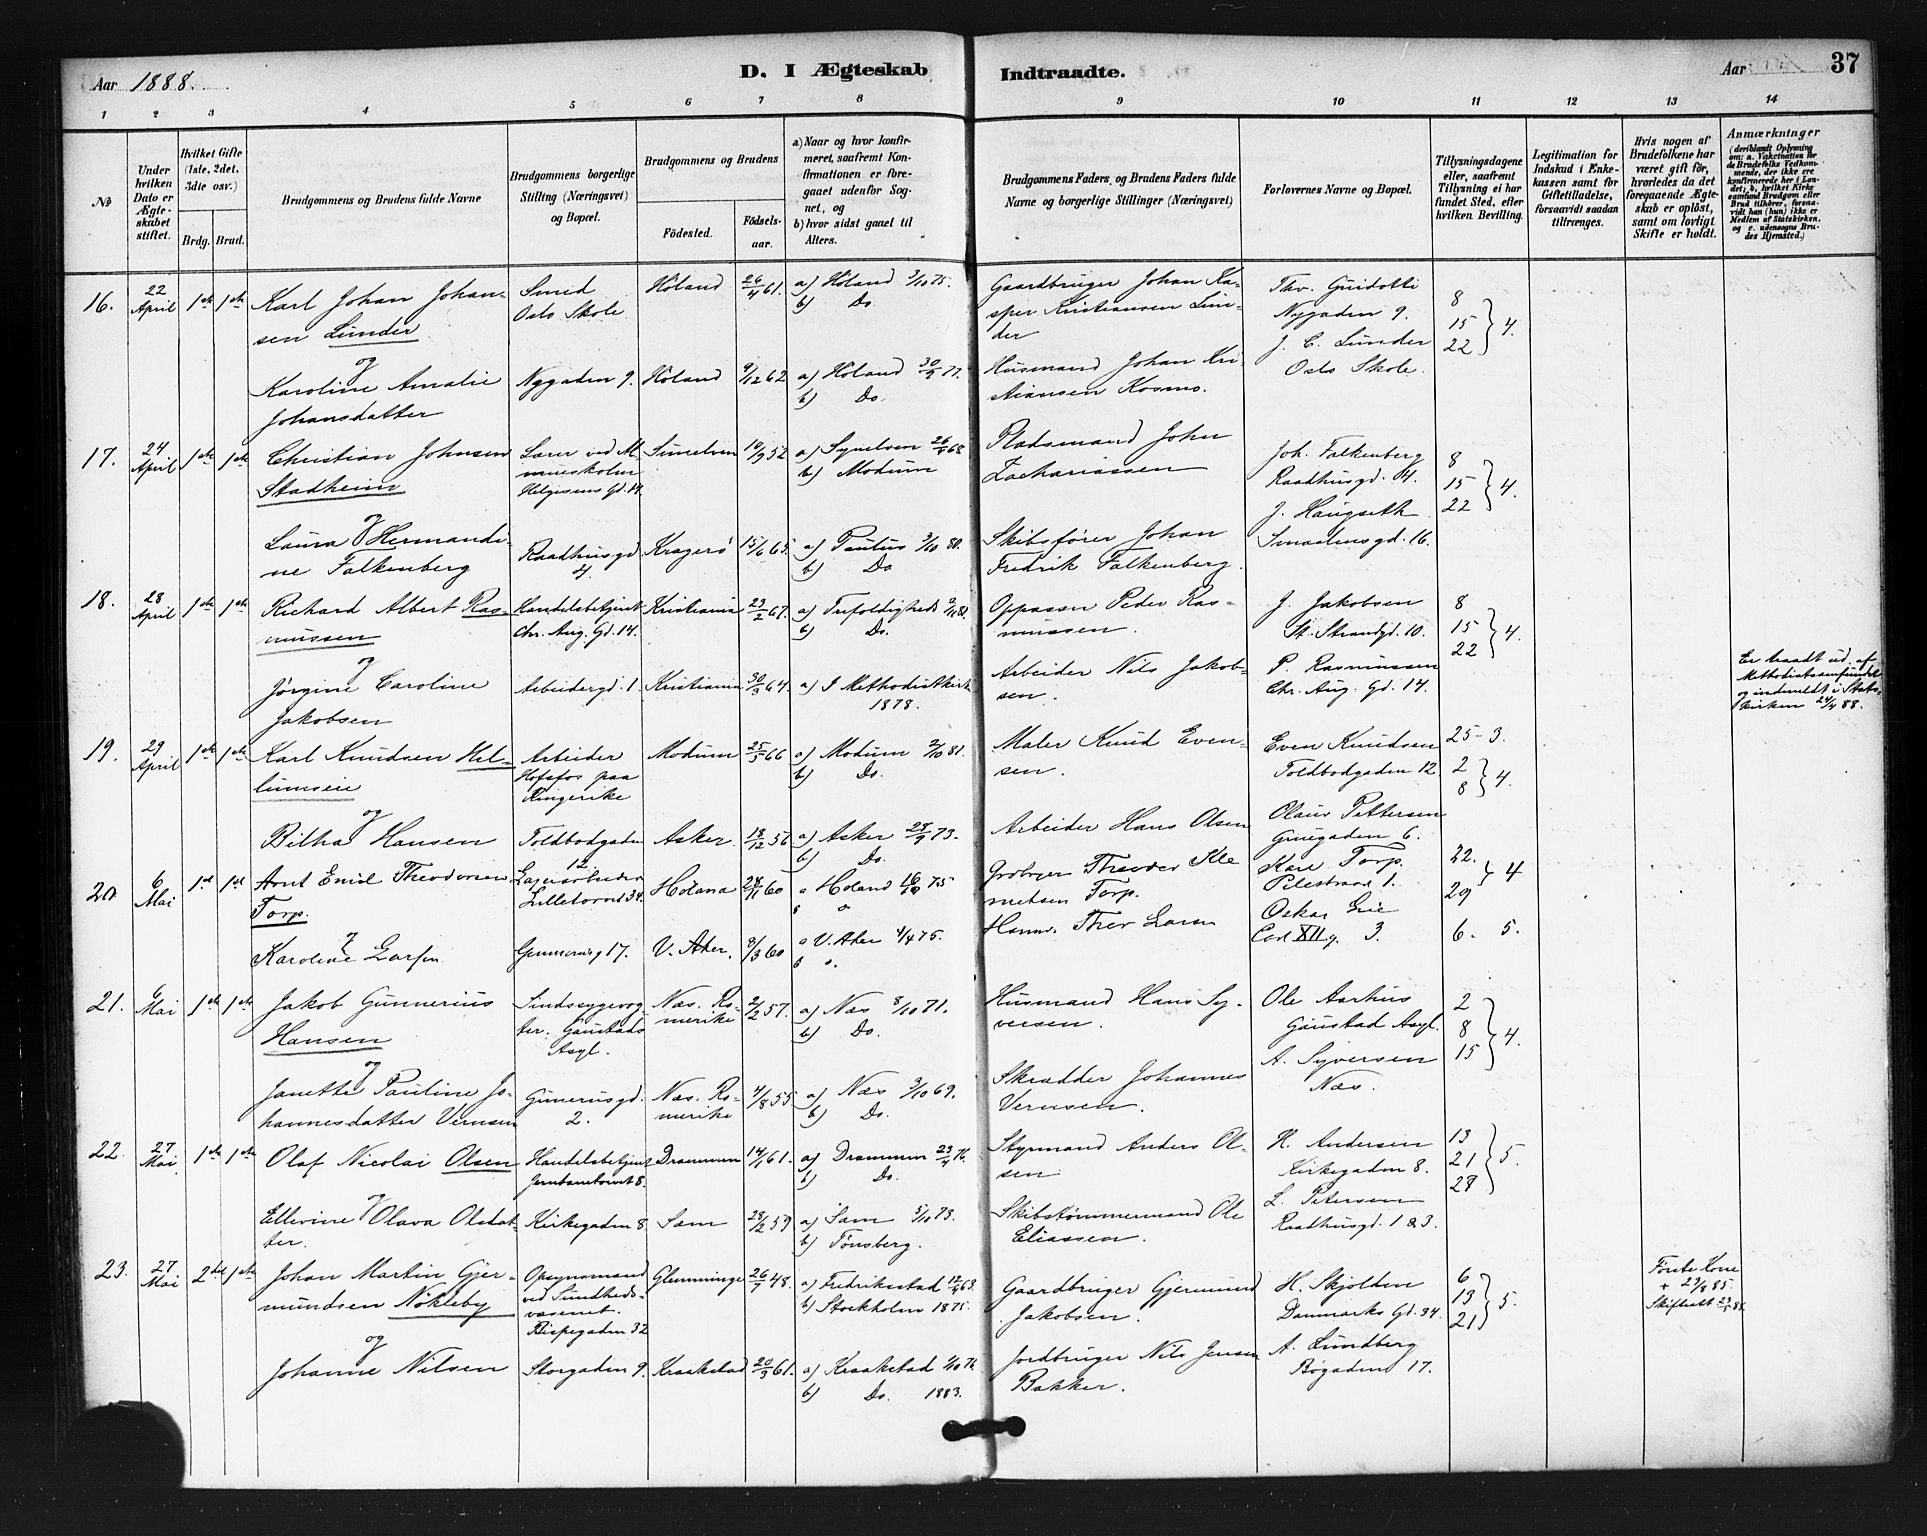 Aar 1888.
D. I Ægteskab Indtraadte.
Aar
37
1 2 3 4 5 6 7 8 9 10 11 12 13 14
No
Under hvilken Dato er Ægteskabet stiftet.
Hvilket Gifte (1ste, 2det, 3die osv.)
Brdg. Brud.
Brudgommens og Brudens fulde Navne
Brudgommens borgerlige Stilling (Næringsvei) og Bopæl.
Brudgommens og Brudens
Fødested. Fødselsaar.
a) Naar og hvor konfirmeret, saafremt Konfirmationen er foregaaet udenfor Sognet, og
b) hvor sidst gaaet til Alters.
Brudgommens Faders, og Brudens Faders fulde Navne og borgerlige Stillinger (Næringsvei)
Forlovernes Navne og Bopæl.
Tillysningsdagene eller, saafremt Tillysning ei har fundet Sted, efter hvilken Bevilling.
Legitimation for Indskud i Enkekassen samt for Giftetilladelse, forsaavidt saadan tiltrænges.
Hvis nogen af Brudefolkene har været gift før, hvorledes da det foregaaende Ægteskab er opløst, samt om lovligt Skifte er holdt.
Anmærkninger
(deriblandt Oplysning om: a. Vakcination for de Brudefolks Vedkommende, der ikke ere konfirmerede her i Landet; b. hvilket Kirkesamfund Brudgom eller Brud tilhører, forsaavidt han (hun) ikke er Medlem af Statskirken, og c. udensogns Brudes Hjemsted.)
16. 22 April 1ste 1ste
Karl Johan Johansen Lunder
Smed
Oslo Skole
Høland 26/4 61.
a) Høland 3/10 75.
b) Do.
Gaardbruger Johan Kasper Kristiansen Lunder
Thv. Guidotti
Nygaden 9.
J. C. Lunder
Oslo Skole.
8
15
22 } 4.
og
Karoline Amalie Johansdatter
Nygaden 9. Høland 9/12 62
a) Høland 30/9 77.
b) Do.
Husmand Johan Kristiansen Kosmo.
17. 24 April 1ste 1ste
Christian Johnsen Stadheim
Lærer ved
Helgesens Gd. 14
Sunelven 10/9 52
a) Synelven 26/5 68
b) Modum
Pladsmand John Zachariassen
Joh. Falkenberg
Raadhusgd. 4.
J. Haugseth
Smaalensgd. 16.
8
15
22 } 4.
og
Laura Hermandine Falkenberg
Raadhusgd 4.
Kragerø 15/6 65.
a) Paulus 3/10 80.
b) Do
Skibsfører Johan Fredrik Falkenberg.
18. 28 April 1ste 1ste
Richard Albert Rasmussen
Handelsbetjent
Chr. Aug. Gd. 14.
Kristiania 23/2 67.
a) Trefoldigheds
b) Do.
Oppasser Peder Rasmussen.
J. Jakobsen
St. Strandgd. 10.
P. Rasmussen
Chr. Aug. Gd. 14.
8
15
22 } 4.
og
Jørgine Caroline Jakobsen
Arbeidergd. 1. Kristiania 30/3 64.
a) I Methodistkirk 1878.
Arbeider Nils Jakobsen.
Er traadt ud af Methodistsamfundet og indmeldt i Statskirken 24/4 88.
19. 29 April 1ste 1ste
Karl Knudsen Hellumseie
Arbeider
Hofsfos paa Ringerike
Modum 25/5 66
a) Modum 2/10 81.
b) Do.
Maler Knud Evensen.
Even Knudsen
Toldbodgaden 12.
Olaus Pettersen
6.
25 - 3.
2
8 } 4.
og
Bilha Hansen
Toldbodgaden 12.
Asker. 18/12 56
a) Asker 28/9 73.
b) Do.
Arbeider Hans Olsen
20 6 Mai 1ste 1ste
Arnt Emil Theodorsen Torp.
Lagerarbeider
Lilletorvet 34
Høland 60
a Høland 75
Theodor Klemetsen Torp.
Karl Torp.
Pilestræd 1.
Oskar
Carl XIIg. 3.
22.
29 } 4
6. 5.
Karoline Larsen
17. V. Aker. 8/3 60
a V. Aker 4/4 75.
b
Thor Larsen
21. 6 Mai 1ste 1ste
Jakob Gunnerius Hansen
Sindssygevogter. Gaustads Asyl.
Næs. Romerike 2/2 57.
a) Næs 8/10 71.
b) Do.
Husmand Hans Syversen.
Ole Aarhus
Gaustad Asyl.
A. Syversen
Næs.
2
8
15 } 4.
og
Janette Pauline Johannesdatter Vernsen
Gunerusgd. 2.
Næs. Romerike 4/8 55
a) Næs 3/10 69.
b) Do.
Skrædder Johannes Vernsen.
22. 27 Mai 1ste 1ste
Olaf Nicolai Olsen
Handelsbetjent
Jernbanetorvet 8.
Drammen 14/1 61.
a) Drammen 23/4 76.
b) Do.
Styrmand Anders Olsen
H. Andersen
Kirkegaden 8.
L. Petersen
Raadhusgd. 1 & 3.
13
21
27 } 5.
og
Ellevine Olava Olsdatter.
Kirkegaden 8 Sem 28/2 59
a) Sem 5/10 73.
b) Tønsberg.
Skibstømmermand Ole Eliassen.
23. 27 Mai 2det 1ste
Johan Martin Gjermundsen Nøkleby
Opsynsmand ved Sundhedsvæsenet.
Bispegaden 32
Glemminge 26/7 48.
a) Fredriksstad 12/4 63.
b) Stockholm 1875.
Gaardbruger Gjermund Jakobsen.
H. Skjolden
Danmarks Gd. 34.
A. Lundberg
Bøgaden 17.
6
13
21 } 5.
Første Kone + 23/8 85.
Skifteatt
og
Johanne Nilsen
Storgaden 9. Kraakstad 20/3 61.
a) Kraakstad 1/10 76.
b) Do. 1883.
Jordbruger Nils Jensen Bakker.